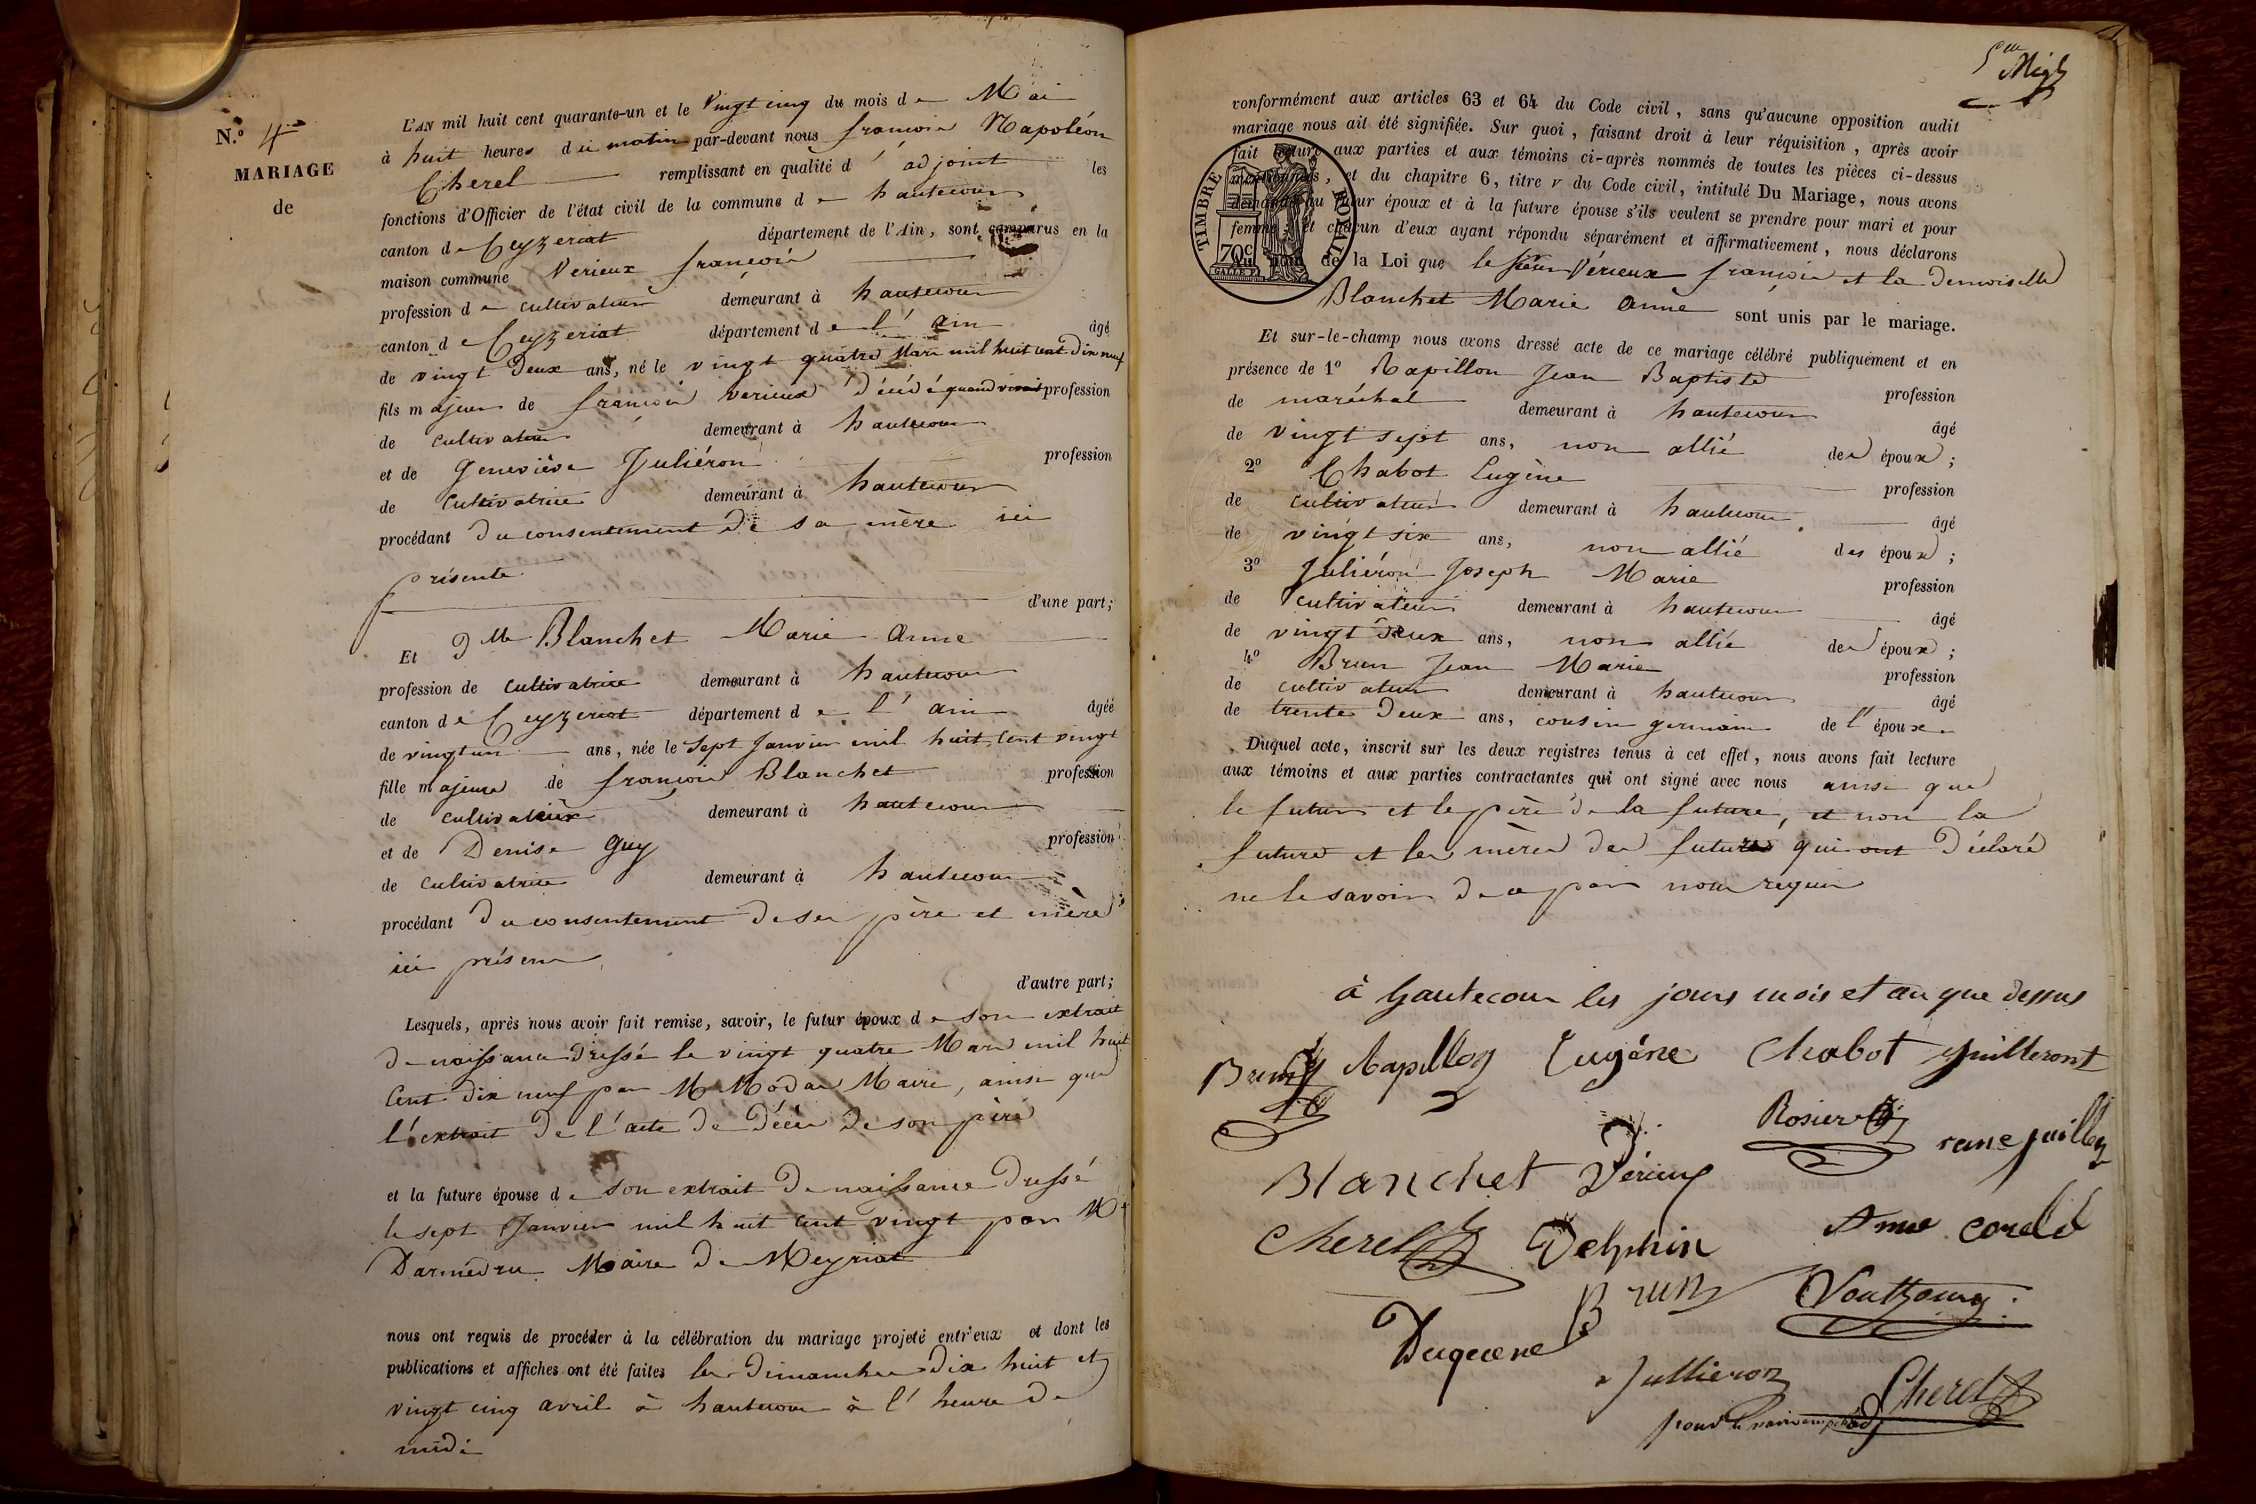 N.º 4
MARIAGE
de
L'AN mil huit cent quarante-un et le vingt cinq du mois de Mai
à huit heures du matin par-devant nous françois Napoléon
Cherel remplissant en qualité d'adjoint les
fonctions d'Officier de l'état civil de la commune de hautecour
canton de Ceyzeriat département de l'Ain, sont comparus en la
maison commune Verieux françois
profession de cultivateur demeurant à hautecour
canton de Ceyzeriat département de l'ain âgé
de vingt deux ans, né le vingt quatre Mars mil huit cent dix neuf
fils majeur de françois verieux décédé quand vivait profession
de cultivateur demeurant à hautecour
et de Geneviève Juliéron profession
de cultivatrice demeurant à hautecour
procédant du consentement de sa mère ici
présente
d'une part;
Et Dlle Blanchet Marie Anne
profession de cultivatrice demeurant à hautecour
canton de Ceyzeriat département de l'ain âgée
de vingt un ans, née le sept Janvier mil huit cent vingt
fille majeure de françois Blanchet profession
de cultivateur demeurant à hautecour
et de Denise Guy profession
de cultivatrice demeurant à hautecour
procédant du consentement de ses père et mère
ici présens
d'autre part;
Lesquels, après nous avoir fait remise, savoir, le futur époux de son extrait
de naissance dressé le vingt quatre Mars mil huit
cent dix neuf par Mr Modas Maire, ainsi que
l'extrait de l'acte de décès de son père
et la future épouse de son extrait de naissance dressé
le sept Janvier mil huit cent vingt par Mr
Darmedru Maire de Meyriat
nous ont requis de procéder à la célébration du mariage projeté entr'eux et dont les
publications et affiches ont été faites les dimanches dix huit et
vingt cinq avril à hautecour à l'heure de
midi
conformément aux articles 63 et 64 du Code civil, sans qu'aucune opposition audit
mariage nous ait été signifiée. Sur quoi, faisant droit à leur réquisition, après avoir
fait lecture aux parties et aux témoins ci-après nommés de toutes les pièces ci-dessus
mentionnées, et du chapitre 6, titre v du Code civil, intitulé Du Mariage, nous avons
demandé au futur époux et à la future épouse s'ils veulent se prendre pour mari et pour
femme; et chacun d'eux ayant répondu séparément et affirmativement, nous déclarons
au nom de la Loi que le sieur Vérieux françois et la demoiselle
TIMBRE ROYAL
70c
Blanchet Marie Anne sont unis par le mariage.
Et sur-le-champ nous avons dressé acte de ce mariage célébré publiquement et en
présence de 1º Rapillon Jean Baptiste profession
de maréchal demeurant à hautecour âgé
de vingt sept ans, non allié des époux;
2º Chabot Eugène profession
de cultivateur demeurant à hautecour âgé
de vingt six ans, non allié des époux;
3º Juliéron Joseph Marie profession
de cultivateur demeurant à hautecour âgé
de vingt deux ans, non allié des époux;
4º Brun Jean Marie profession
de cultivateur demeurant à hautecour âgé
de trente deux ans, cousin germain de l'époux.
Duquel acte, inscrit sur les deux registres tenus à cet effet, nous avons fait lecture
aux témoins et aux parties contractantes qui ont signé avec nous ainsi que
le futur et le père de la future, et non la
future et les mères des futurs qui ont déclaré
ne le savoir de ce par nous requis
à hautecour les jours mois et an que dessus
Brun Rapillon Eugéne Chabot
Rosier
Blanchet Vérieux
Cherel Delphin
Brun
Duquene
Jullieron Cherel